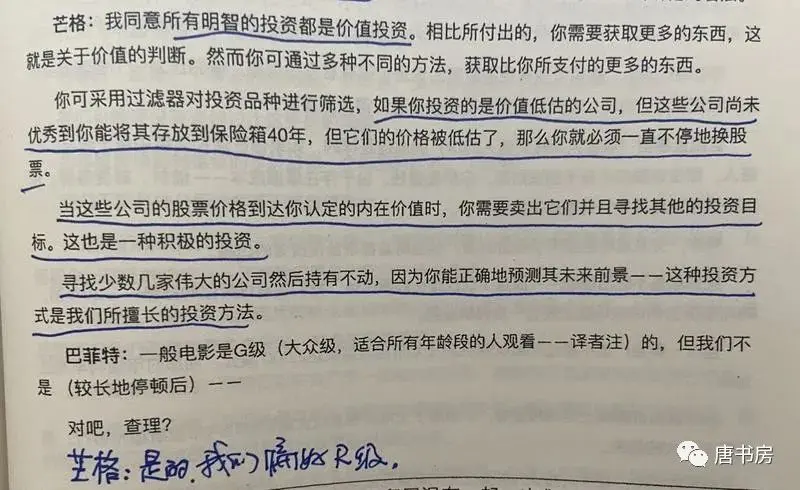 芒格：我同意所有明智的投资都是价值投资。相比所付出的，你需要获取更多的东西，这
就是关于价值的判断。然而你可通过多种不同的方法，获取比你所支付的更多的东西。
你可采用过滤器对投资品种进行筛选，如果你投资的是价值低估的公司，但这些公司尚未
优秀到你能将其存放到保险箱40年，但它们的价格被低估了，那么你就必须一直不停地换股
票。
当这些公司的股票价格到达你认定的内在价值时，你需要卖出它们并且寻找其他的投资目
标。这也是一种积极的投资。
寻找少数几家伟大的公司然后持有不动，因为你能正确地预测其未来前景——这种投资方
式是我们所擅长的投资方法。
巴菲特：一般电影是G级（大众级，适合所有年龄段的人观看——译者注）的，但我们不
是（较长地停顿后）——
对吧，查理？
芒格：是的，我们偏好R级。
唐书房